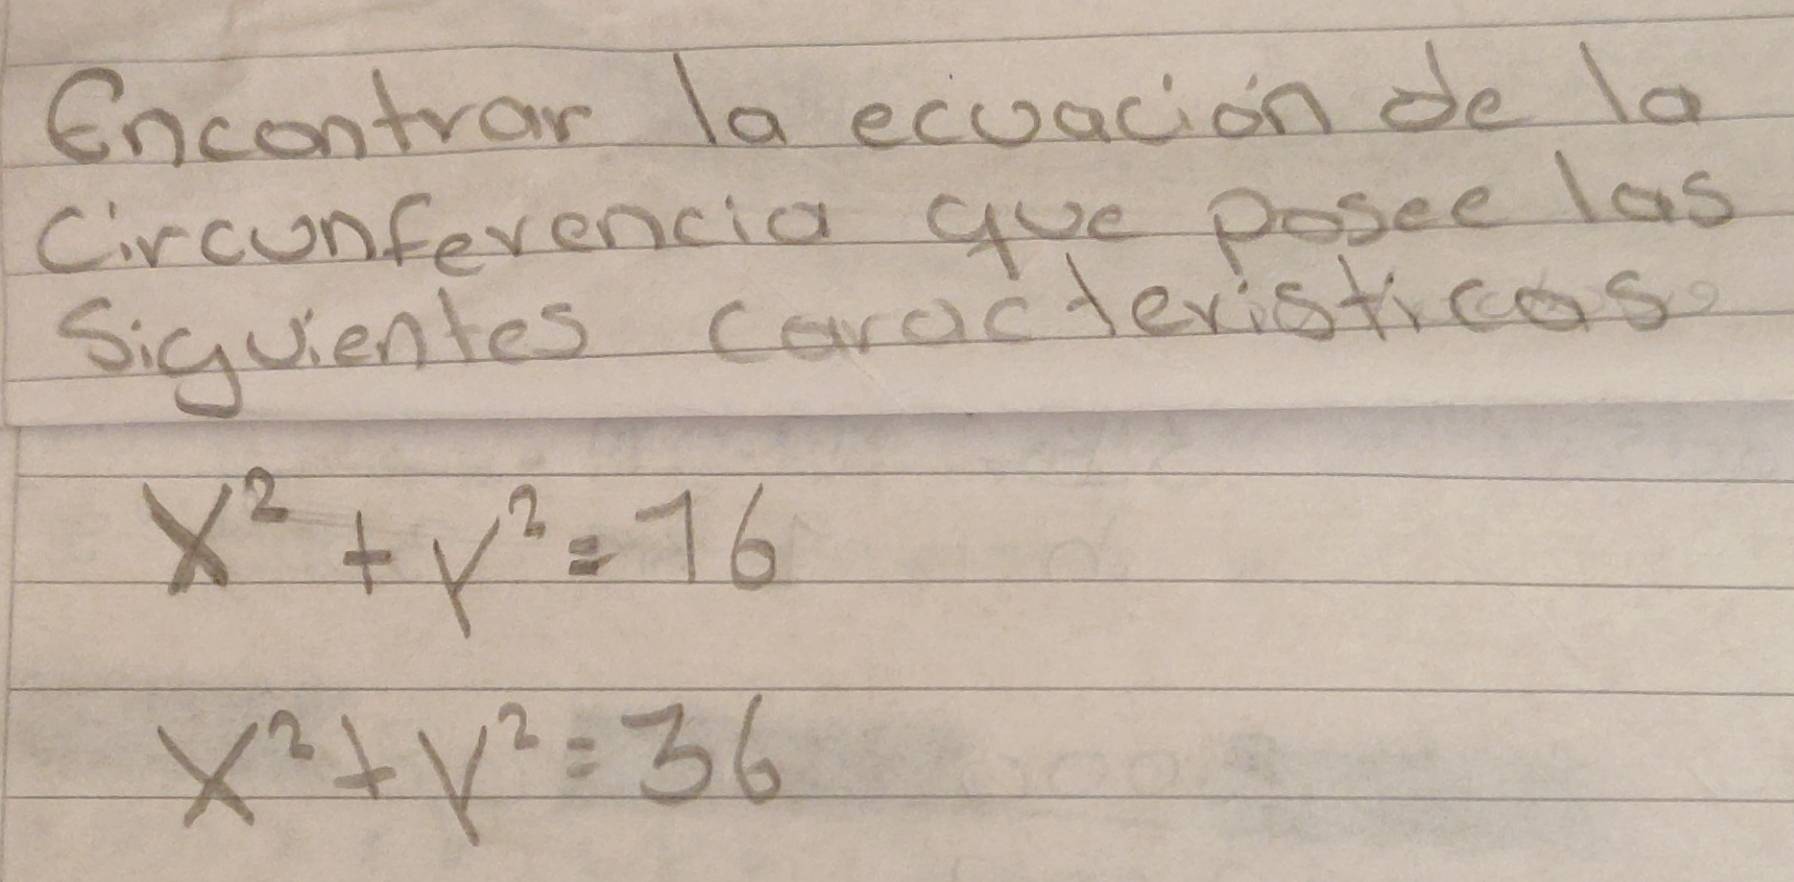 Encontrar la ecuación de la
circunferencia que posee las
siguientes caracteristicas
x² + y² = 16
x² + y² = 36